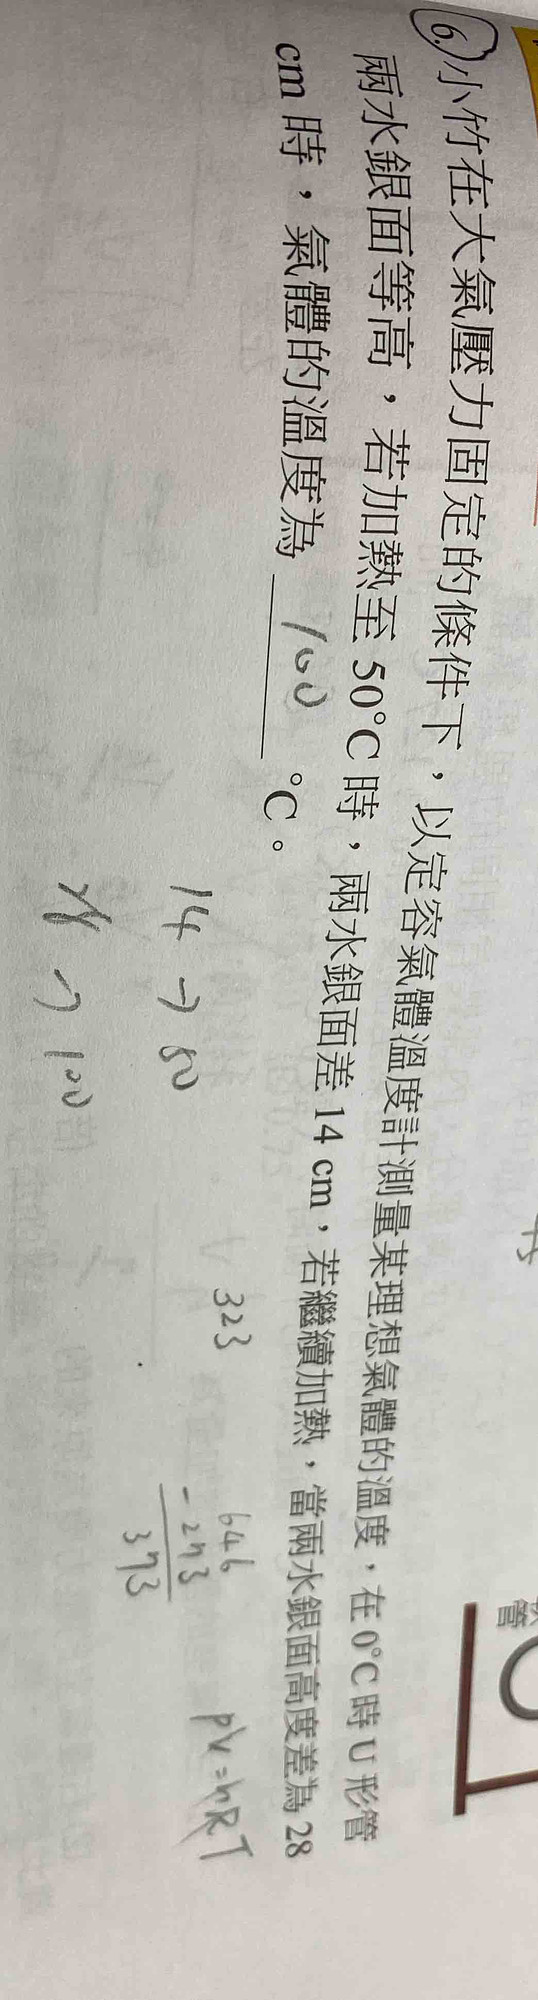 6. 小竹在大氣壓力固定的條件下，以定容氣體溫度計測量某理想氣體的溫度，在 0°C 時 U 形管
兩水銀面等高，若加熱至 50°C 時，兩水銀面差 14 cm，若繼續加熱，當兩水銀面高度差為 28
cm 時，氣體的溫度為 100 °C。
14 → 50
28 → 100
323
646
-273
373
PV=nRT
管